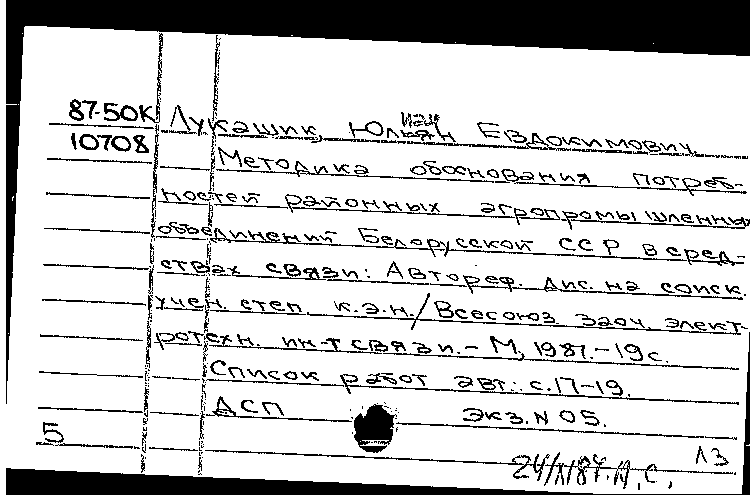 87-50К Лукашик, Юльян Евдокимович.
10708 Методика обоснования потреб-
ностей районных агропромышленных
объединений Белорусской ССР в сред-
ствах связи: Автореф. дис. на соиск.
учен. степ. к.э.н./Всесоюз. заоч. элект-
ротехн. ин-т связи. - М, 1987. - 19 с.
Список работ авт.: с. 17-19.
ДСП Экз. N 05.
5
ЛЗ